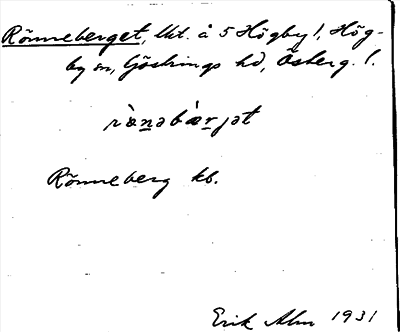 Rönneberget, lht. å 5 Högby!, Hög-
by sn, Göstrings hd, Österg. l.
rö̀nəbæ̀rjət
Rönneberg kb.
Erik Alm 1931